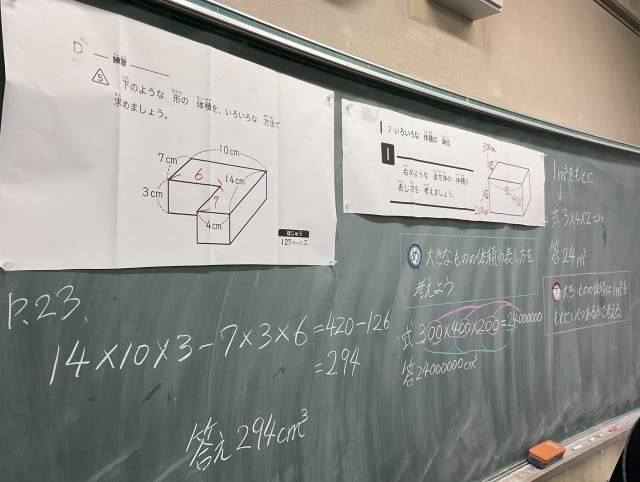 D 練習
5 下のような 形の 体積を、いろいろな 方法で
求めましょう。
10cm
7cm
6
14cm
3cm
7
4cm
ほじゅう
127ページ
2 いろいろな 体積の 単位
1
右のような 直方体の 体積の
表し方を 考えましょう。
300cm
200cm
1m³をもとに
式 3×4×2=24
答 24m³
め 大きなものの体積の表し方を
考えよう
式 300×400×200=24000000
答 24000000cm³
P.23.
14×10×3-7×3×6=420-126
=294
答え 294cm³